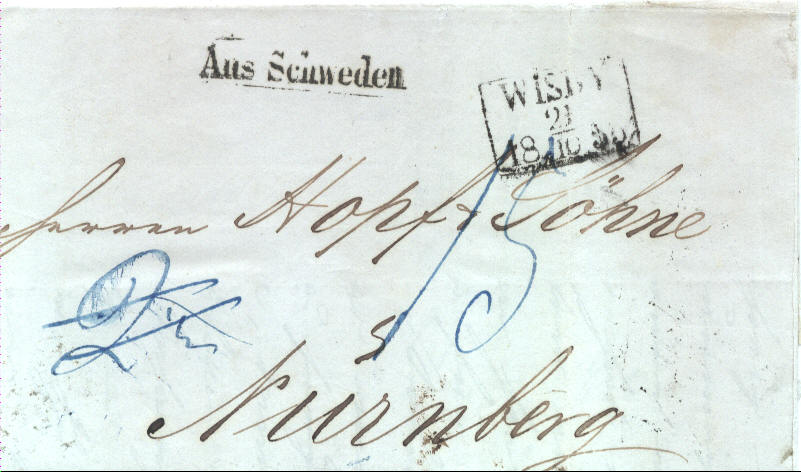 Aus Schweden
WISBY
21
18 10
Herren Hopf & Söhne
15
Nürnberg